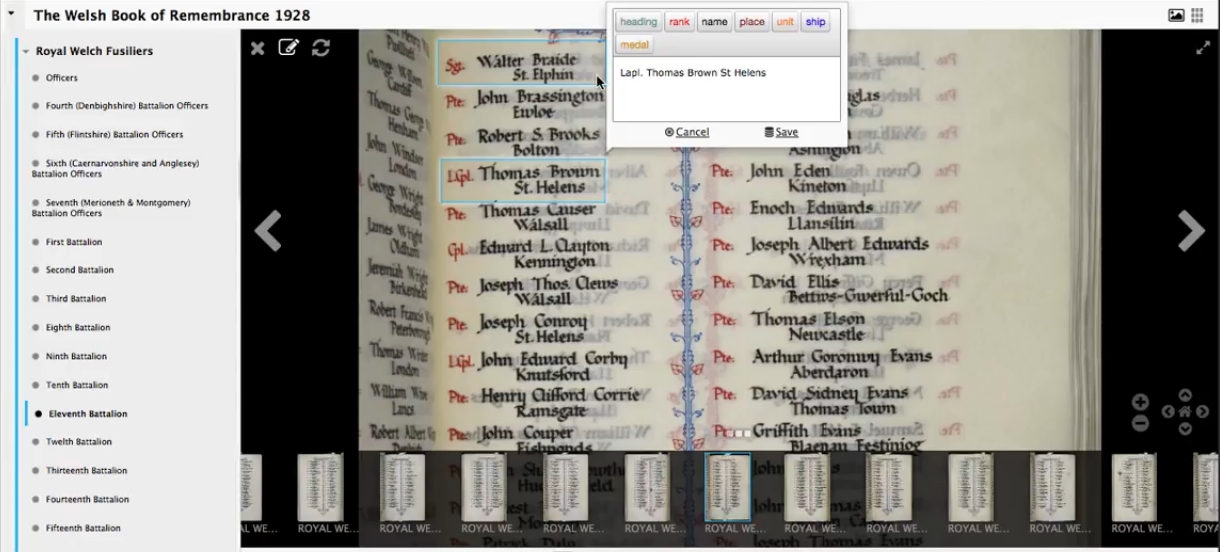 The Welsh Book of Remembrance 1928
Royal Welch Fusiliers
Officers
Fourth (Denbighshire) Battalion Officers
Fifth (Flintshire) Battalion Officers
Sixth (Caernarvonshire and Anglesey)
Battalion Officers
Seventh (Merioneth & Montgomery)
Battalion Officers
First Battalion
Second Battalion
Third Battalion
Eighth Battalion
Ninth Battalion
Tenth Battalion
Eleventh Battalion
Twelth Battalion
Thirteenth Battalion
Fourteenth Battalion
Fifteenth Battalion
heading rank name place unit ship
medal
Lapl. Thomas Brown St Helens
Cancel Save
Cardiff
Thomas George
John Windsor
London
George Wright
James Wright
Oldham
Jeremiah Wright
Birkenhead
Robert Francis
Peterborough
Thomas
London
William
Lancs
Robert Albert
Sgt. Walter Braide
St. Elphin
Pte. John Brassington
Ewloe
Pte. Robert S. Brooks
Bolton
L.Cpl. Thomas Brown
St. Helens
Pte. Thomas Causer
Walsall
Cpl. Edward L. Clayton
Kennington
Pte. Joseph Thos. Clews
Walsall
Pte. Joseph Conroy
St. Helens
L.Cpl. John Edward Corby
Knutsford
Pte. Henry Clifford Corrie
Ramsgate
Pte. John Couper
Fishponds
glas
Ashington
Pte. John Eden
Kineton
Pte. Enoch Edwards
Llansilin
Pte. Joseph Albert Edwards
Wrexham
Pte. David Ellis
Bettws-Gwerful-Goch
Pte. Thomas Elson
Newcastle
Pte. Arthur Goronwy Evans
Aberdaron
Pte. David Sidney Evans
Thomas Town
Griffith Evans
Blaenau Festiniog
AL WE...
ROYAL WE...
ROYAL WE...
ROYAL WE...
ROYAL WE...
ROYAL WE...
ROYAL WE...
ROYAL WE...
ROYAL WE...
ROYAL WE...
ROYAL WE...
ROYAL WE...